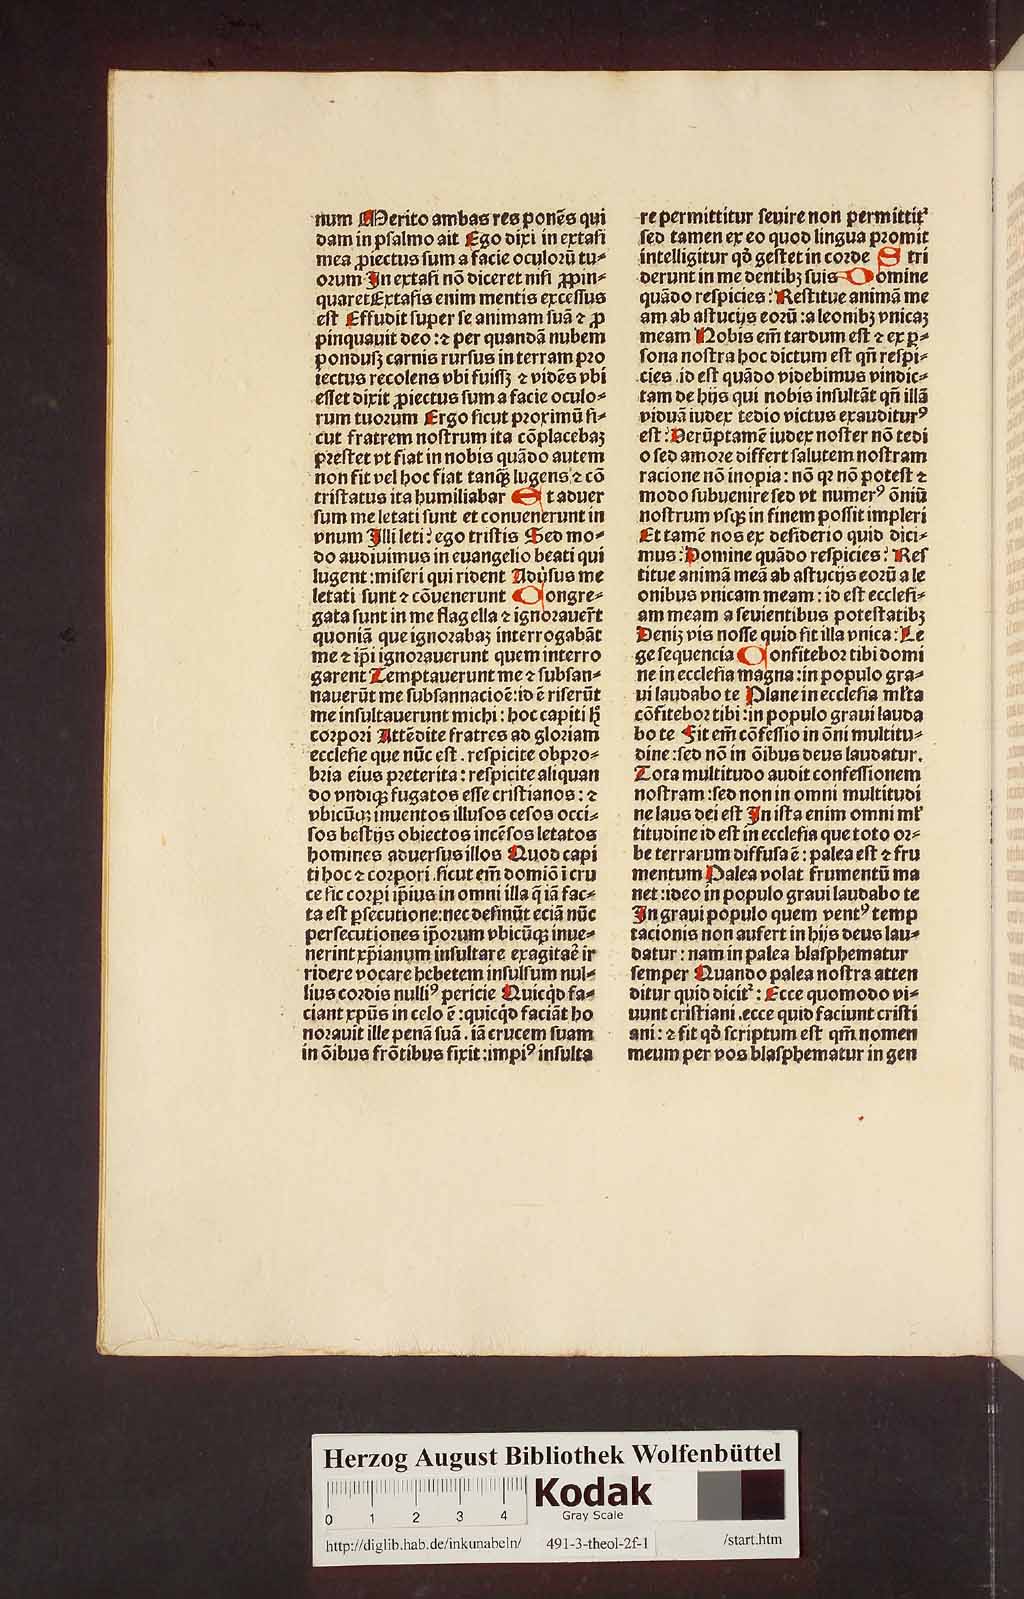 num Merito ambas res ponẽs qui
dam in psalmo ait Ego dixi in extasi
mea ꝓiectus sum a facie oculorũ tu⸗
orum In extasi nõ diceret nisi ꝓpin⸗
quaret Extasis enim mentis excessus
est Effudit super se animam suã ⁊ ꝓ
pinquauit deo : ⁊ per quandã nubem
pondusꝫ carnis rursus in terram pro
iectus recolens vbi fuissꝫ ⁊ vidẽs vbi
esset dixit ꝓiectus sum a facie oculo⸗
rum tuorum Ergo sicut proximũ si⸗
cut fratrem nostrum ita cõplacebaꝫ
prestet vt fiat in nobis quãdo autem
non fit vel hoc fiat tanqꝫ lugens ⁊ cõ
tristatus ita humiliabar Et aduer
sum me letati sunt et conuenerunt in
vnum Illi leti : ego tristis Sed mo⸗
do audiuimus in euangelio beati qui
lugent : miseri qui rident Adũsus me
letati sunt ⁊ cõuenerunt Congre⸗
gata sunt in me flagella ⁊ ignorauer̃t
quoniã que ignorabaꝫ interrogabãt
me ⁊ ip̃i ignorauerunt quem interro
garent Temptauerunt me ⁊ subsan⸗
nauerũt me subsannacioẽ : id ẽ riserũt
me insultauerunt michi : hoc capiti hꝫ
corpori Attẽdite fratres ad gloriam
ecclesie que nũc est . respicite obpro⸗
bria eius preterita : respicite aliquan
do vndiqꝫ fugatos esse cristianos : ⁊
vbicũqꝫ inuentos illusos cesos occi⸗
sos bestijs obiectos incẽsos letatos
homines aduersus illos Quod capi
ti hoc ⁊ corpori . sicut em̃ domiõ ĩ cru
ce sic corpi ip̃ius in omni illa q̃ iã fac⸗
ta est ꝑsecutione : nec definũt eciã nũc
persecutiones ip̃orum vbicũqꝫ inue⸗
nerint xp̃ianum insultare exagitaẽ ir
ridere vocare hebetem insulsum nul⸗
lius cordis nulliꝰ pericie Quicq̃d fa⸗
ciant xp̃us in celo ẽ : quicq̃d faciãt ho
norauit ille penã suã . iã crucem suam
in õibus frõtibus fixit : impiꝰ insulta
re permittitur seuire non permittit᷑
sed tamen ex eo quod lingua promit
intelligitur qd̃ gestet in corde Stri
derunt in me dentibꝫ suis Domine
quãdo respicies : Restitue animã me
am ab astucijs eorũ : a leonibꝫ vnicaꝫ
meam Nobis em̃ tardum est ⁊ ex ꝑ⸗
sona nostra hoc dictum est qñ respi⸗
cies . id est quãdo videbimus vindic⸗
tam de hijs qui nobis insultãt qñ illã
viduã iudex tedio victus exauditurꝰ
est : Verũptamẽ iudex noster nõ tedi
o sed amore differt salutem nostram
racione nõ inopia : nõ qꝛ nõ potest ⁊
modo subuenire sed vt numerꝰ õniũ
nostrum vsqꝫ in finem possit impleri
Et tamẽ nos ex desiderio quid dici⸗
mus : Domine quãdo respicies : Res
titue animã meã ab astucijs eorũ a le
onibus vnicam meam : id est ecclesi⸗
am meam a seuientibus potestatibꝫ
Deniꝫ vis nosse quid sit illa vnica : Le
ge sequencia Confitebor tibi domi
ne in ecclesia magna : in populo gra⸗
ui laudabo te Plane in ecclesia ml̃ta
cõfitebor tibi : in populo graui lauda
bo te Fit em̃ cõfessio in õni multitu⸗
dine : sed nõ in õibus deus laudatur .
Tota multitudo audit confessionem
nostram : sed non in omni multitudi
ne laus dei est In ista enim omni ml̃
titudine id est in ecclesia que toto or⸗
be terrarum diffusa ẽ : palea est ⁊ fru
mentum Palea volat frumentũ ma
net : ideo in populo graui laudabo te
In graui populo quem ventꝰ temp
tacionis non aufert in hijs deus lau⸗
datur : nam in palea blasphematur
semper Quando palea nostra atten
ditur quid dicit᷑ : Ecce quomodo vi⸗
uunt cristiani . ecce quid faciunt cristi
ani : ⁊ fit qd̃ scriptum est qm̃ nomen
meum per vos blasphematur in gen
Herzog August Bibliothek Wolfenbüttel
0 1 2 3 4
Kodak
Gray Scale
http://diglib.hab.de/inkunabeln/ 491-3-theol-2f-1 /start.htm